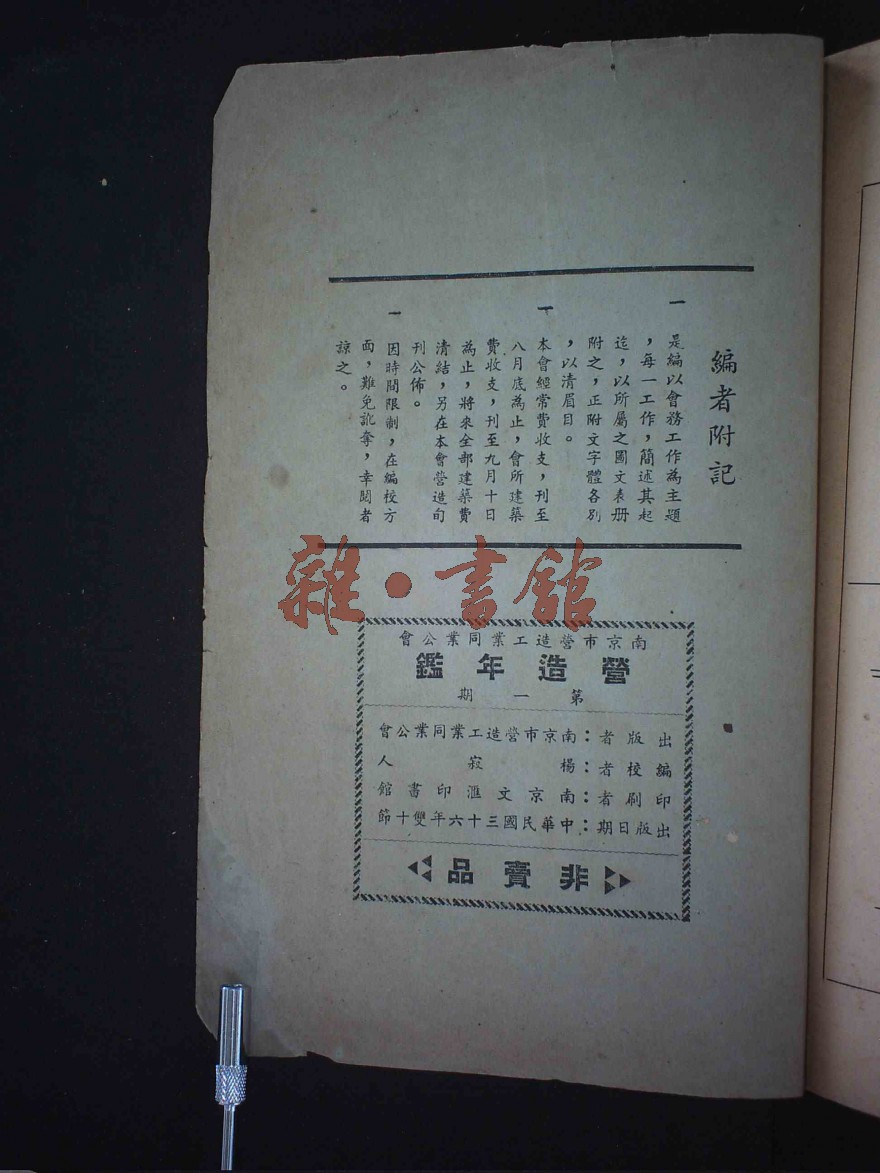 編者附記
一
是編以會務工作為主題
，每一工作，簡述其起
迄，以所屬之圖文表册
附之，正附文字體各別
，以清眉目。
一
本會經常費收支，刊至
八月底為止，會所建築
費收支，刊至九月十日
為止，將來全部建築費
清結，另在本會營造旬
刊公佈。
一
因時間限制，在編校方
面，難免訛奪，幸閱者
諒之。
雜·書館
南京市營造工業同業公會
營造年鑑
第一期
出版者：南京市營造工業同業公會
編校者：楊寂人
印刷者：南京文滙印書館
出版日期：中華民國三十六年雙十節
非賣品